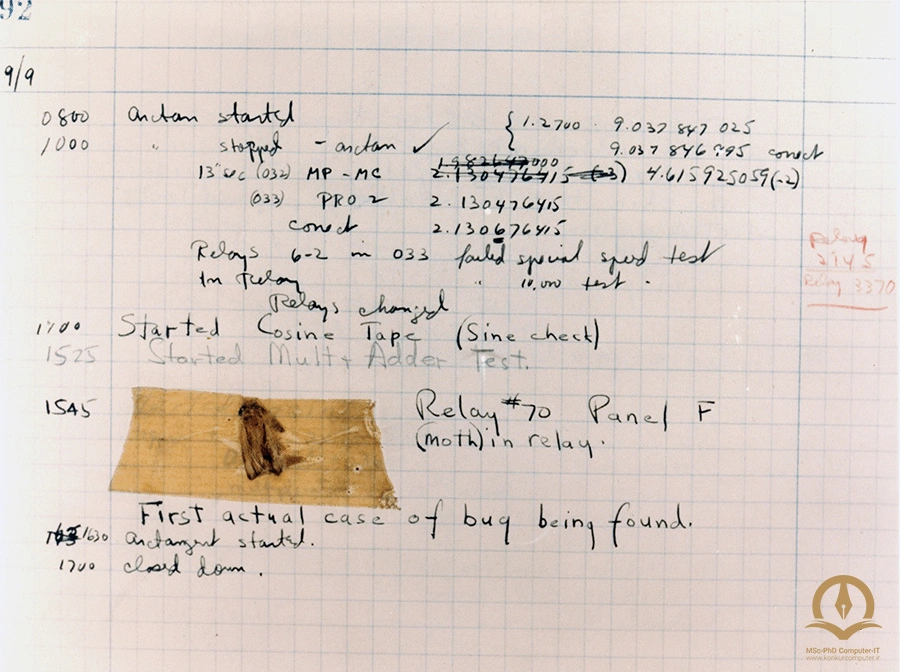 92
9/9
0800 Antan started { 1.2700 · 9.037 847 025
1000 " stopped - antan ✓ 9.037 846 995 correct
13" sec (032) MP - MC 2.130476415 (-3) 4.615925059(-2)
(033) PRO 2 2.130476415
correct 2.130676415
Relays 6-2 in 033 failed special speed test
In Relay " 10,000 test.
Relays changed
Relay
2145
Relay 3370
1100 Started Cosine Tape (Sine check)
1525 Started Mult + Adder Test.
1545 Relay #70 Panel F
(moth) in relay.
First actual case of bug being found.
1630 Antangent started.
1700 closed down.
MSc-PhD Computer-IT
www.konkurcomputer.ir